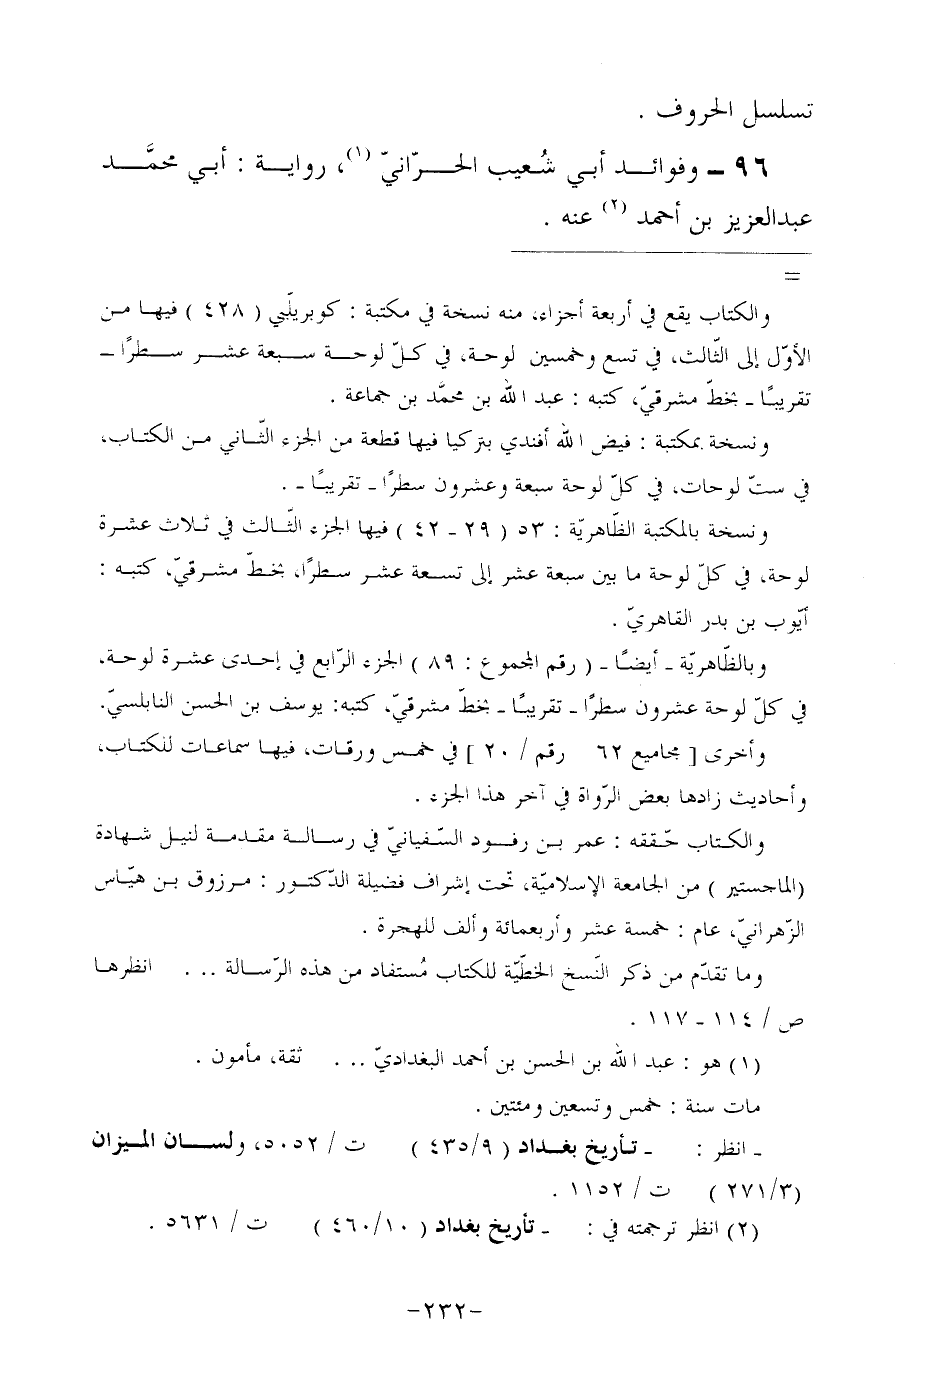 تسلسل الحروف .
٩٦ – وفوائـــد أبي شُعيب الحـــرّانيّ (١)، روايـة : أبي محمَّـــد
عبدالعزيز بن أحمد (٢) عنه .
=
والكتاب يقع في أربعة أجزاء، منه نسخة في مكتبة : كوبريلّي ( ٤٢٨ ) فيهـا مـن
الأوّل إلى الثّالث، في تسع وخمسين لوحة، في كـلّ لوحـة سـبعة عشـر سـطرًا –
تقريبًـا – بخطّ مشرقيّ، كتبه : عبد الله بن محمَّد بن جماعة .
ونسخة بمكتبة : فيض الله أفندي بتركيا فيها قطعة من الجزء الثّـاني مـن الكتاب،
في ستّ لوحات، في كلّ لوحة سبعة وعشرون سطرًا – تقريبًـا – .
ونسخة بالمكتبة الظّاهريّة : ٥٣ ( ٢٩ – ٤٢ ) فيها الجزء الثّـالث في ثـلاث عشـرة
لوحة، في كلّ لوحة ما بين سبعة عشر إلى تسـعة عشـر سـطرًا، بخـطّ مشـرقيّ، كتبـه :
أيّوب بن بدر القاهريّ .
وبالظّاهريّة – أيضًـا – ( رقم المجموع : ٨٩ ) الجزء الرّابع في إحـدى عشـرة لوحـة،
في كلّ لوحة عشرون سطرًا – تقريبًـا – بخطّ مشرقيّ، كتبه: يوسف بن الحسن النابلسيّ.
وأخرى [ مجاميع ٦٢ رقم / ٢٠ ] في خمـس ورقـات، فيهـا سماعـات للكتـاب،
وأحاديث زادها بعض الرّواة في آخر هذا الجزء .
والكتـاب حقّقه : عمر بـن رفـود السّـفيانيّ في رسـالـة مقـدمـة لنيـل شـهادة
(الماجستير ) من الجامعة الإسلاميّة، تحت إشراف فضيلة الدّكتـور : مـرزوق بـن هيّـاس
الزّهرانيّ، عام : خمسة عشر وأربعمائة وألف للهجرة .
وما تقدّم من ذكر النّسخ الخطّيّة للكتاب مُستفاد من هذه الرّسالة .. . انظرهـا
ص / ١١٤ – ١١٧ .
(١) هو : عبد الله بن الحسن بن أحمد البغداديّ .. . ثقة، مأمون .
مات سنة : خمس وتسعين ومئتين .
– انظر : – تأريخ بغـداد ( ٤٣٥/٩ ) ت / ٥٠٥٢، ولســـان المـيزان
(٢٧١/٣ ) ت / ١١٥٢ .
(٢) انظر ترجمته في : – تأريخ بغداد ( ٤٦٠/١٠ ) ت / ٥٦٣١ .
–٢٣٢–